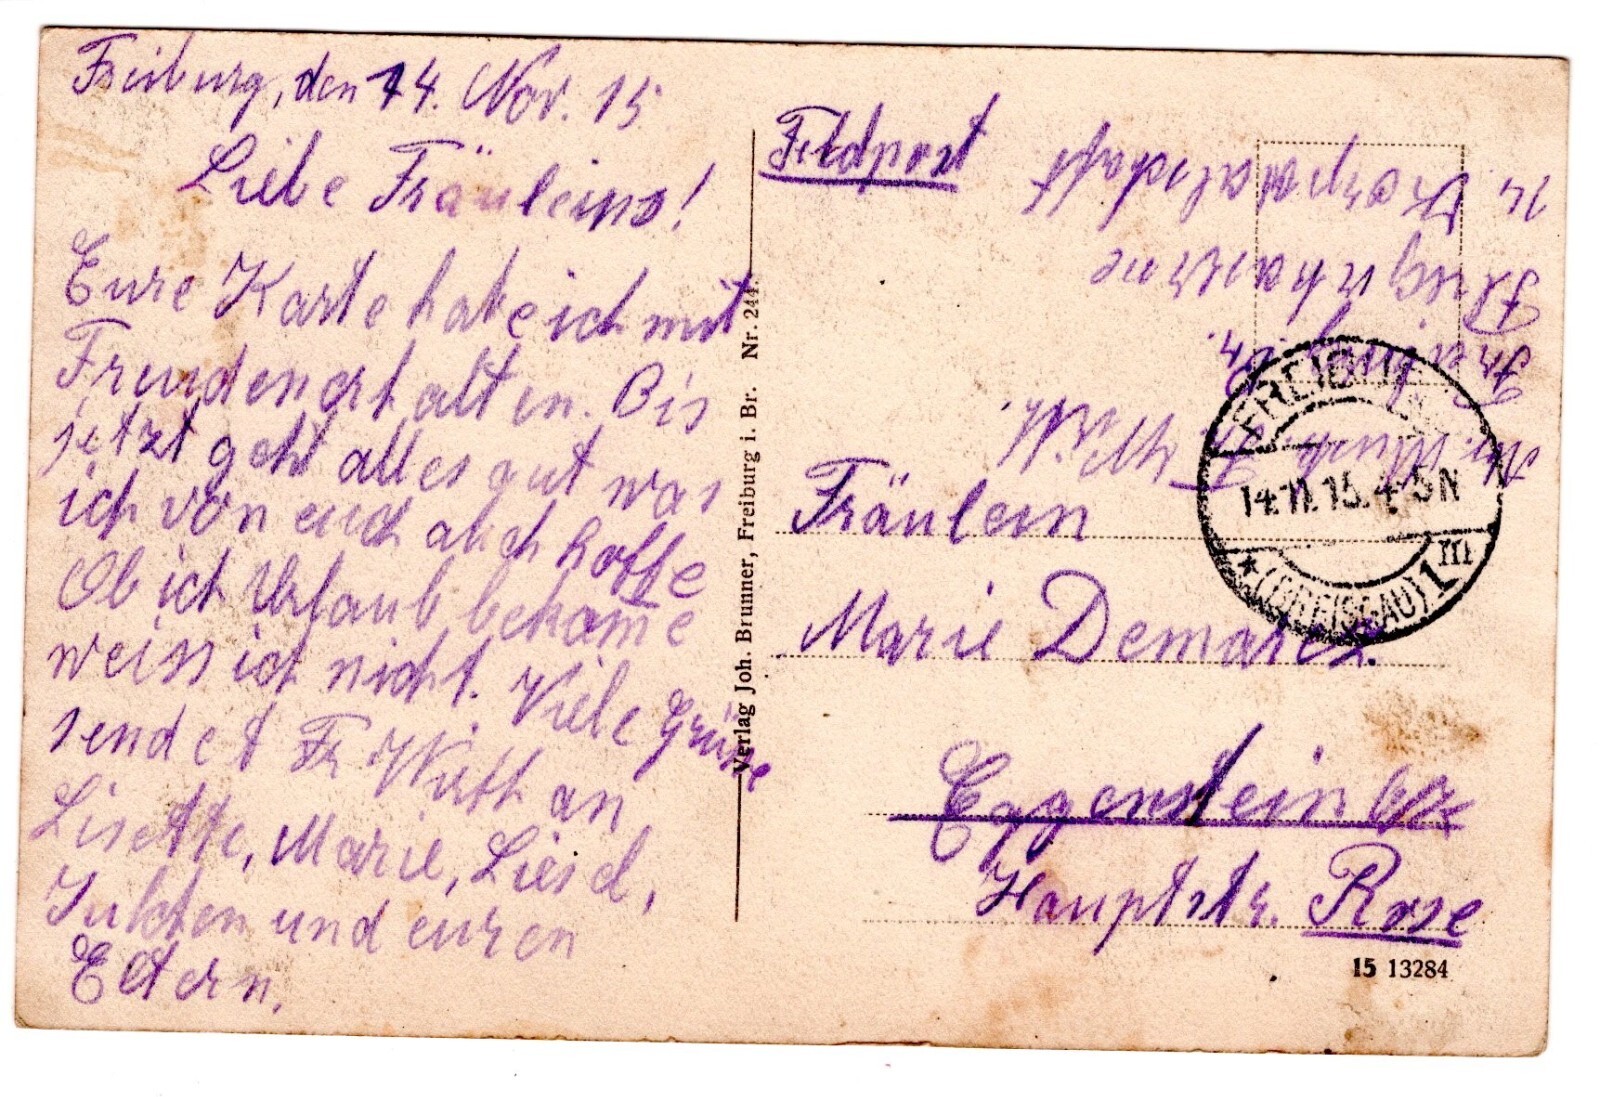 Freiburg, den 14. Nov. 15
Liebe Fräuleins!
Eure Karte habe ich mit
Freuden erhalten. Bis
jetzt geht alles gut was
ich von euch auch hoffe
Ob ich Urlaub bekome
weiss ich nicht. Viele Grüsse
sendet Fr Wirth an
Lisette, Marie, Liesel,
Julchen und euren
Eltern.
Verlag Joh. Brunner, Freiburg i. Br. Nr. 244.
Feldpost
Freiburg i. Br.
FREIBURG
14.11.15. 4-5N
*(BREISGAU) 1 m
Fräulein
Marie Demarez.
Eggenstein
Hauptstr. Rose
15 13284